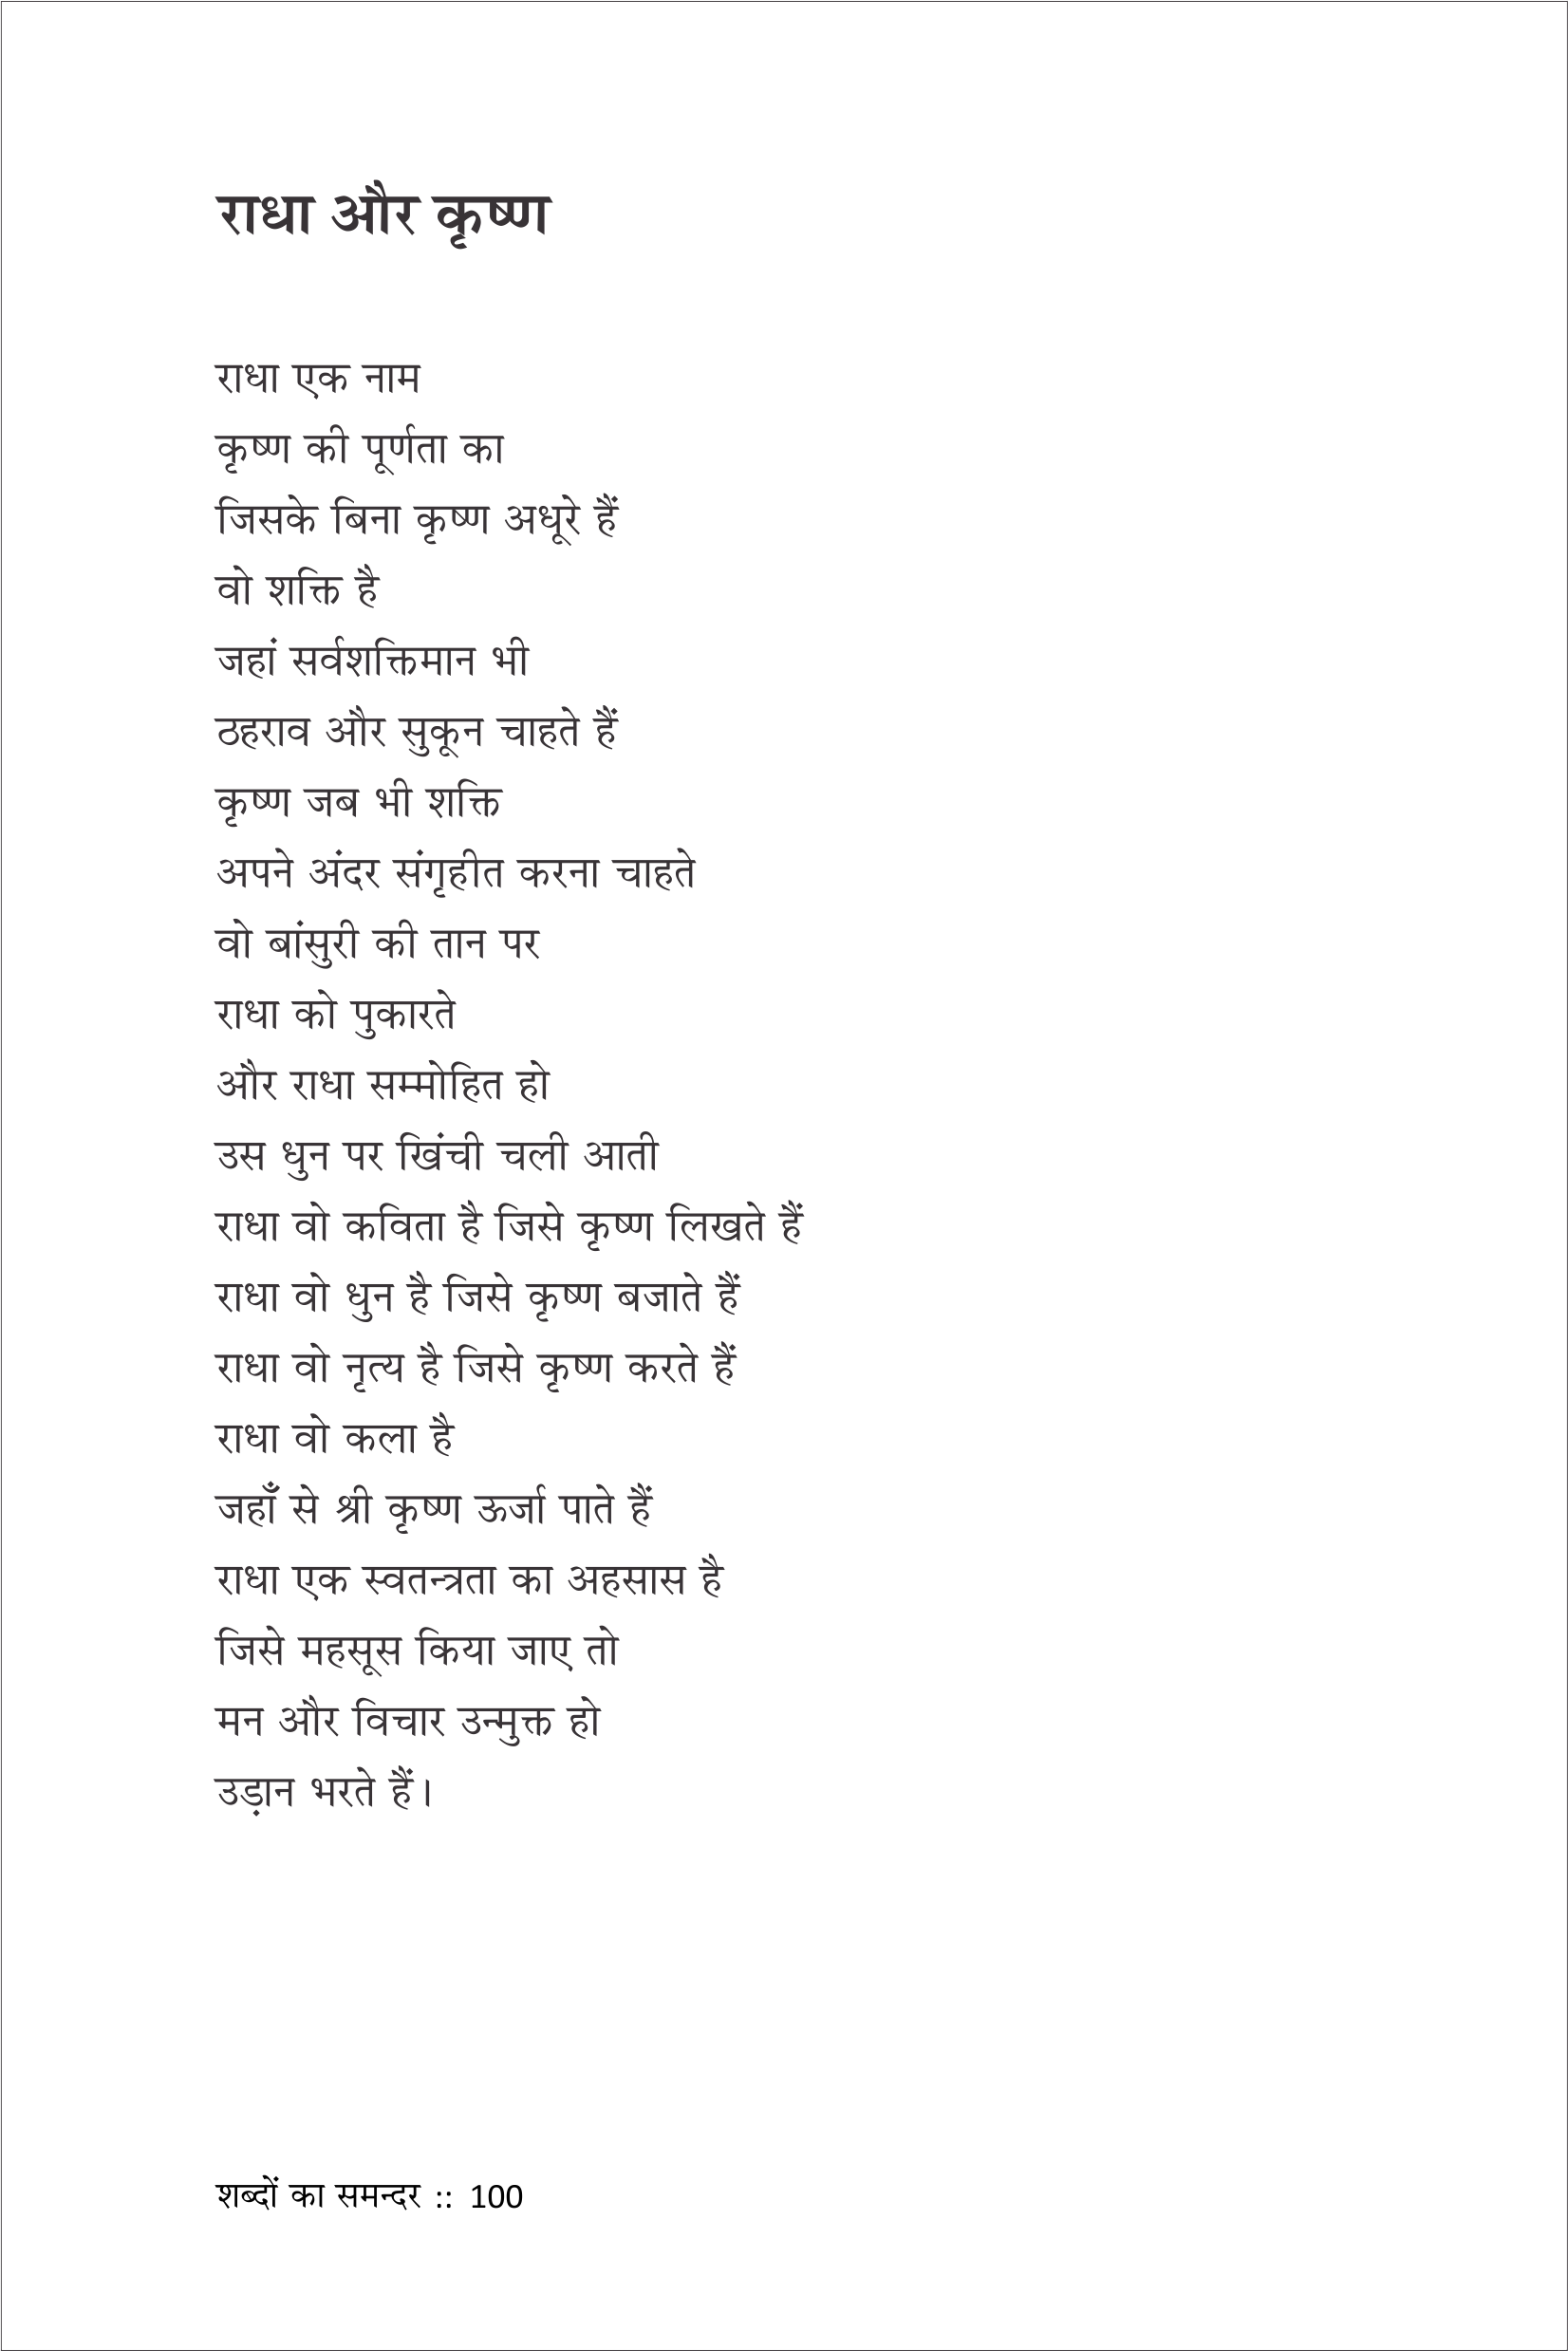 राधा और कृष्ण
राधा एक नाम
कृष्ण की पूर्णता का
जिसके बिना कृष्ण अधूरे हैं
वो शक्ति है
जहां सर्वशक्तिमान भी
ठहराव और सुकून चाहते हैं
कृष्ण जब भी शक्ति
अपने अंदर संगृहीत करना चाहते
वो बांसुरी की तान पर
राधा को पुकारते
और राधा सम्मोहित हो
उस धुन पर खिंची चली आती
राधा वो कविता है जिसे कृष्ण लिखते हैं
राधा वो धुन है जिसे कृष्ण बजाते हैं
राधा वो नृत्य है जिसे कृष्ण करते हैं
राधा वो कला है
जहाँ से श्री कृष्ण ऊर्जा पाते हैं
राधा एक स्वतन्त्रता का अहसास है
जिसे महसूस किया जाए तो
मन और विचार उन्मुक्त हो
उड़ान भरते हैं।
शब्दों का समन्दर :: 100